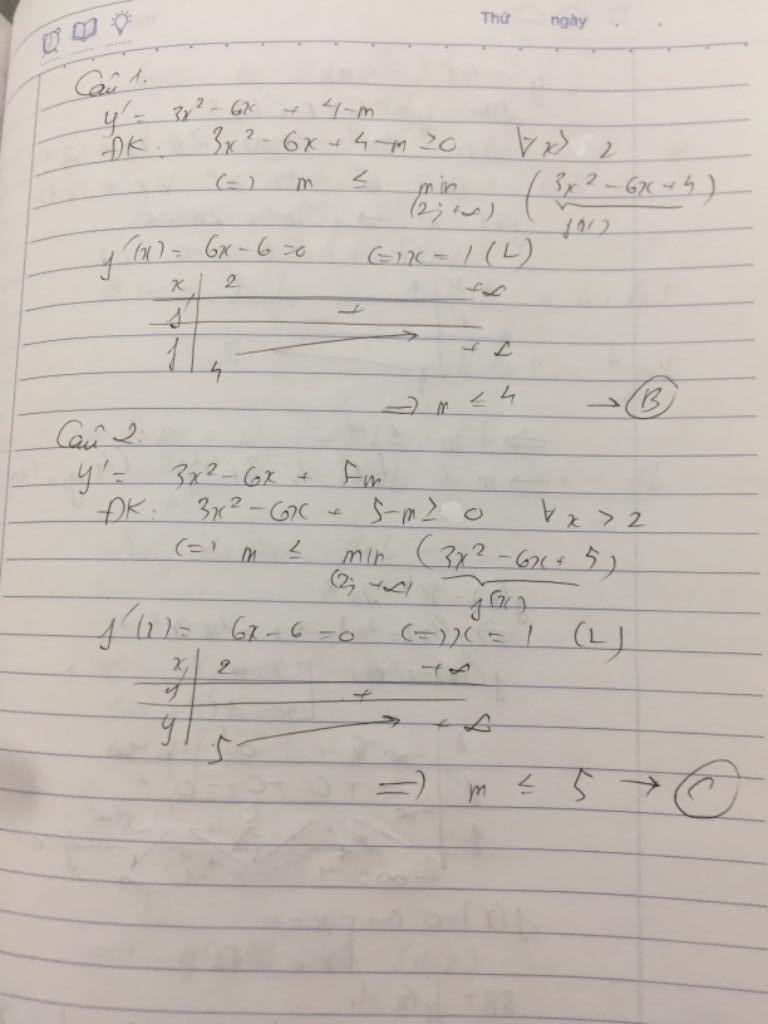 Thứ ngày . .
Câu 1.
y' = 3x² - 6x + 4-m
ĐK: 3x² - 6x + 4 - m ≥ 0 ∀x > 2
(=) m ≤ min (3x² - 6x + 4)
(2; +∞) f(x)
f'(x) = 6x - 6 = 0 (=) x = 1 (L)
x 2 +∞
f' +
f 4 +∞
=) m ≤ 4 → B
Câu 2:
y' = 3x² - 6x + 5-m
ĐK: 3x² - 6x + 5-m ≥ 0 ∀x > 2
(=) m ≤ min (3x² - 6x + 5)
(2; +∞) f(x)
f'(x) = 6x - 6 = 0 (=) x = 1 (L)
x 2 +∞
y' +
y 5 +∞
=) m ≤ 5 → C